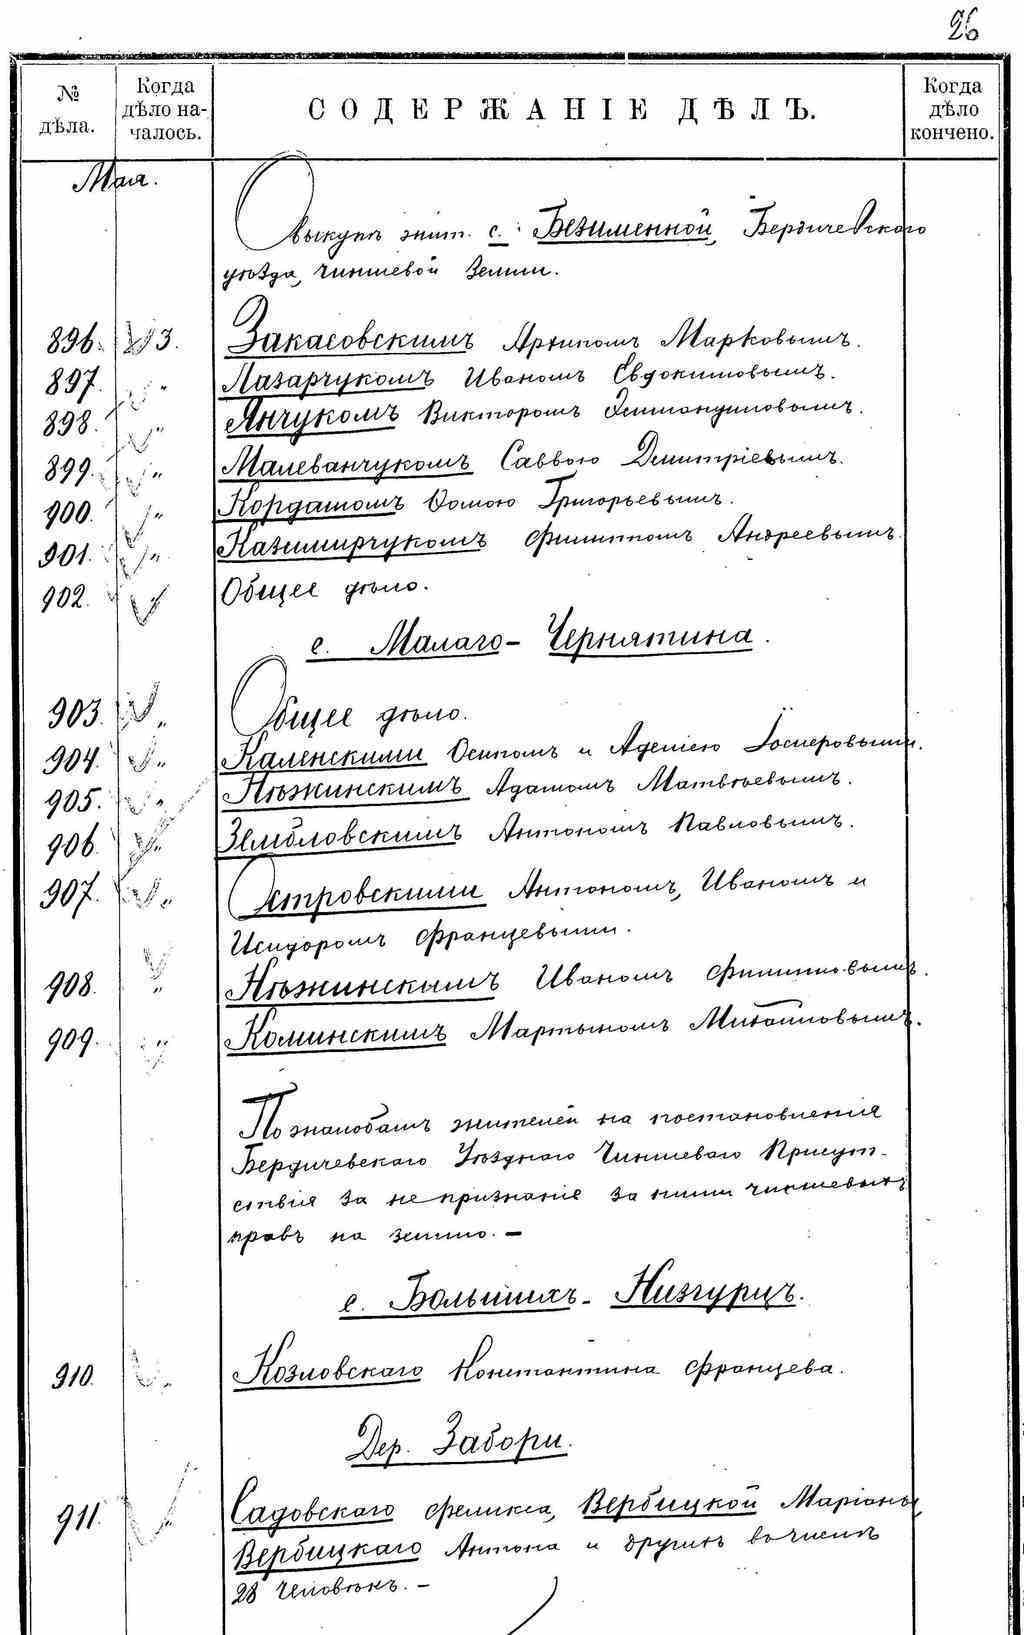 26
№ дѣла.
Когда дѣло на-чалось.
СОДЕРЖАНІЕ ДѢЛЪ.
Когда дѣло кончено.
Мая.
О выкупѣ жит. с. Безименной, Бердичевскаго
уѣзда, чиншевой земли.
896. 3. Закасовскимъ Артимомъ Марковымъ.
897. " Лазарчукомъ Иваномъ Евдокимовымъ.
898. " Янчукомъ Викторомъ
899. " Малеванчукомъ Саввою Димитріевымъ.
900. " Кордашомъ Ѳомою Григорьевымъ.
901. " Казимирчукомъ Филиппомъ Андреевымъ
902. " Общее дѣло.
с. Малаго-Чернятина.
903. " Общее дѣло.
904. " Каленскими Осипомъ и Аделею Іосиеровыми.
905. " Нѣжинскимъ Адамомъ Матвѣевымъ.
906. " Зембловскимъ Антономъ Павловымъ.
907. " Островскими Антономъ, Иваномъ и
Исидоромъ Францевыми.
908. " Нѣжинскимъ Иваномъ Филипповымъ.
909. " Коминскимъ Мартыномъ Михайловымъ.
По жалобамъ жителей на постановленія
Бердичевскаго Уѣзднаго Чиншеваго Присут-
ствія за не признаніе за ними чиншевыхъ
правъ на землю. —
с. Большихъ-Низгурцъ.
910. " Козловскаго Константина Францева.
Дер. Забори.
911. " Садовскаго Феликса, Вербицкой Маріаны,
Вербицкаго Антона и другихъ въ числѣ
28 человѣкъ. —